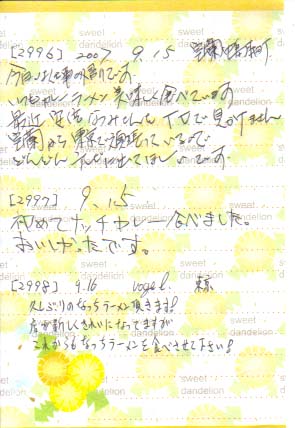 [2996] 2007 9.15 室蘭
今日は仕事の帰りです。
いつもラーメン美味しく食べています
最近 TVで見かけません
室蘭から東京で頑張っているので
どんどん てほしいです。
[2997] 9.15
初めてナッチカレー食べました。
おいしかったです。
[2998] 9.16 vogel. 東京
久しぶりのなっちラーメン頂きます!
店が新しくきれいになってますが
これからもなっちラーメンを食べさせて下さい!
sweet dandelion